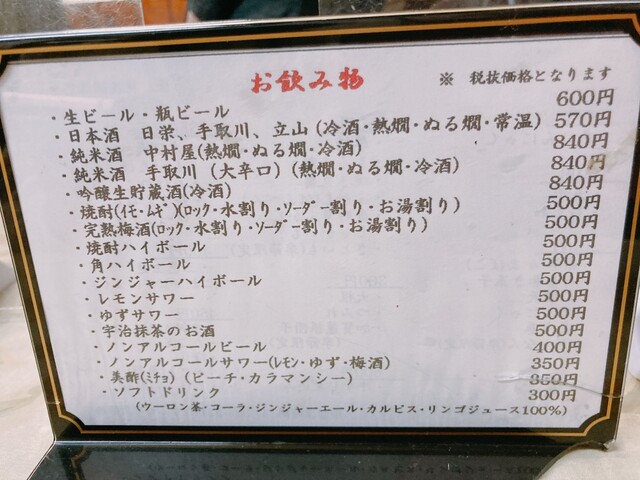 お飲み物 ※ 税抜価格となります
・生ビール・瓶ビール 600円
・日本酒 日栄、手取川、立山（冷酒・熱燗・ぬる燗・常温） 570円
・純米酒 中村屋（熱燗・ぬる燗・冷酒） 840円
・純米酒 手取川（大辛口）（熱燗・ぬる燗・冷酒） 840円
・吟醸生貯蔵酒（冷酒） 840円
・焼酎（イモ・ムギ）（ロック・水割り・ソーダー割り・お湯割り） 500円
・完熟梅酒（ロック・水割り・ソーダー割り・お湯割り） 500円
・焼酎ハイボール 500円
・角ハイボール 500円
・ジンジャーハイボール 500円
・レモンサワー 500円
・ゆずサワー 500円
・宇治抹茶のお酒 500円
・ノンアルコールビール 400円
・ノンアルコールサワー（レモン・ゆず・梅酒） 350円
・美酢（ミチョ）（ピーチ・カラマンシー） 350円
・ソフトドリンク 300円
（ウーロン茶・コーラ・ジンジャーエール・カルピス・リンゴジュース100%）